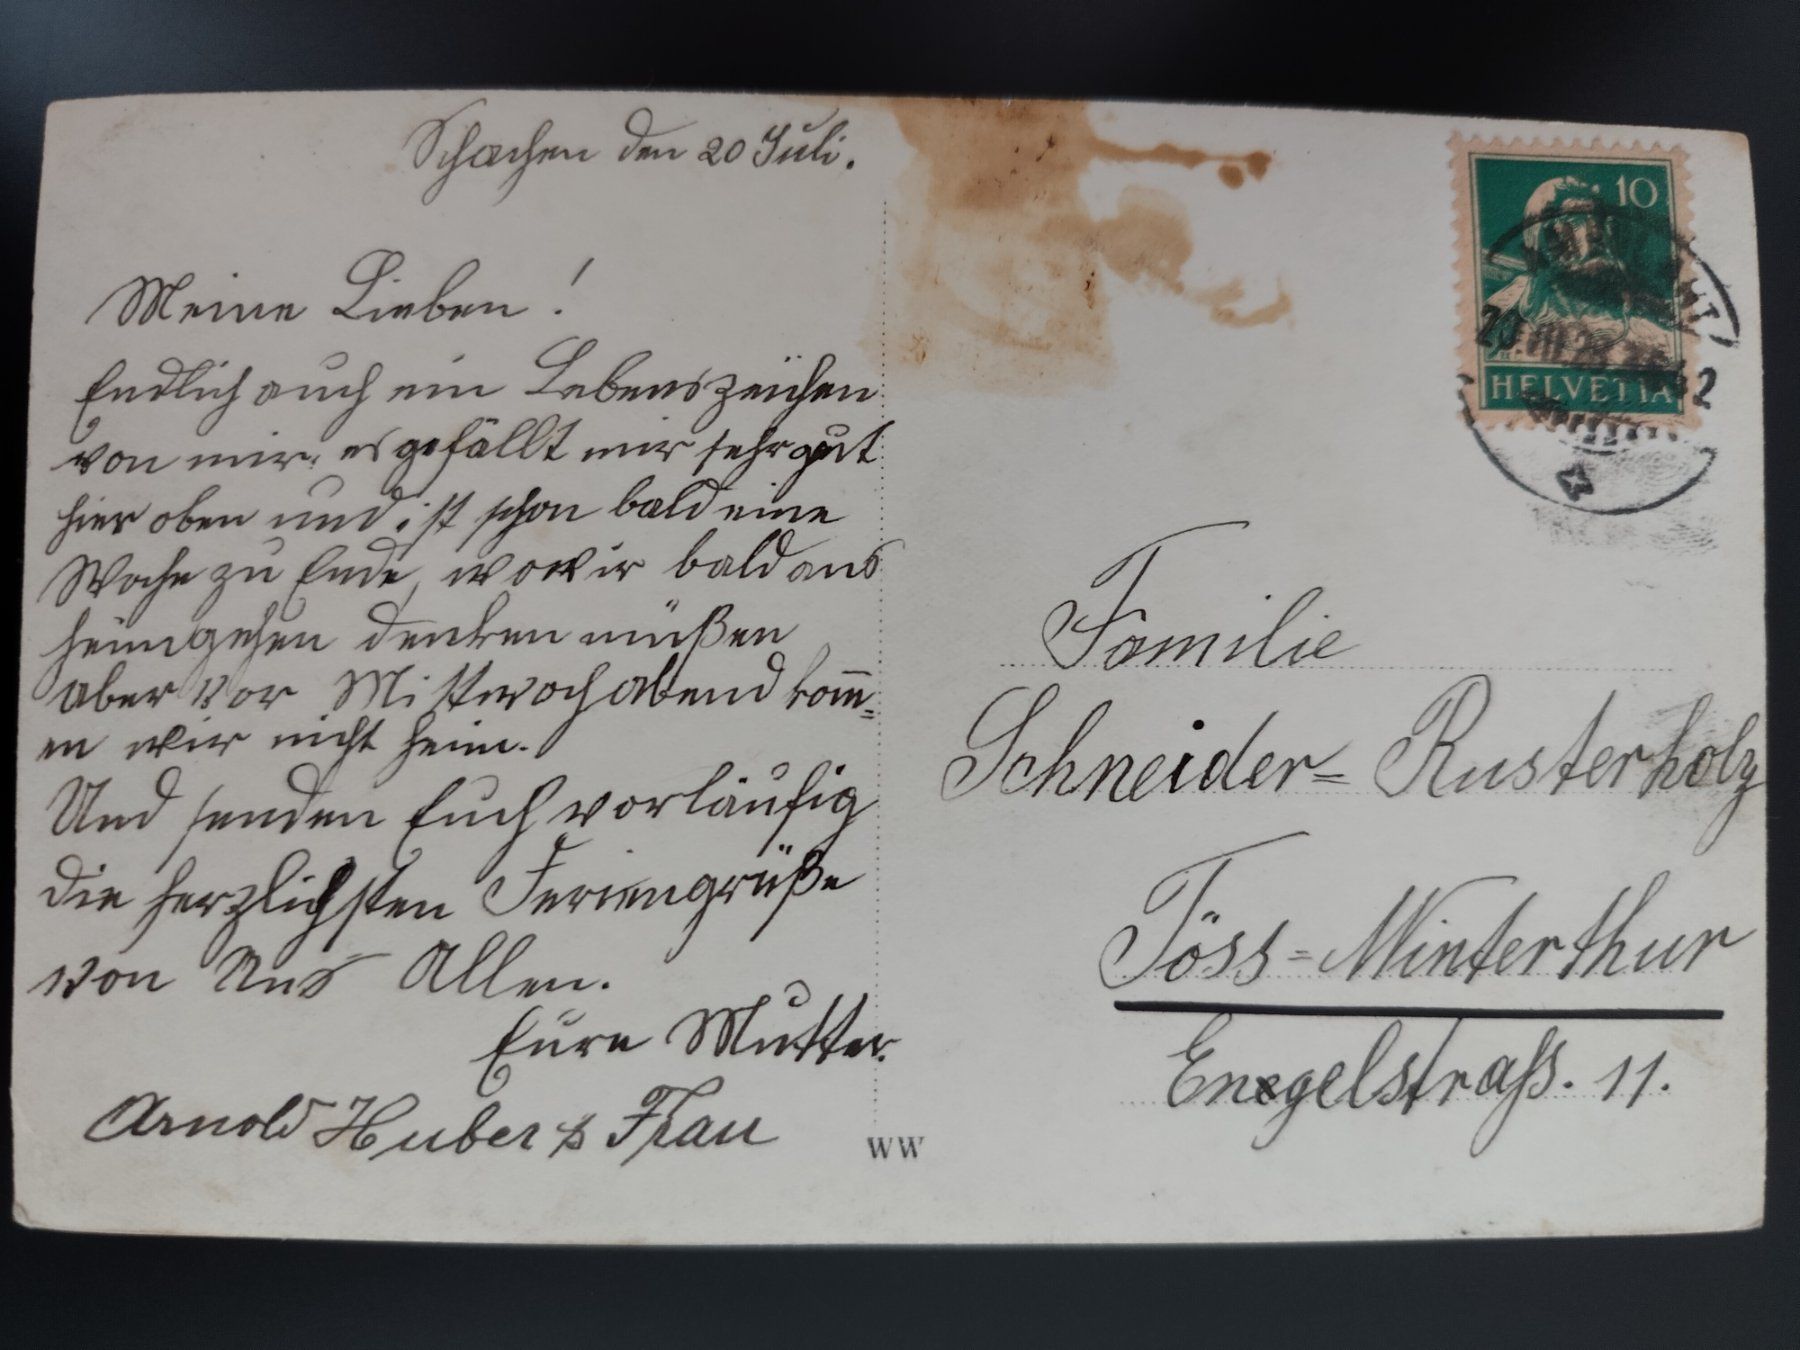 Schachen den 20 Juli.
Meine Lieben!
Endlich auch ein Lebenszeichen
von mir. es gefällt mir sehr gut
hier oben und ist schon bald eine
Woche zu Ende, wo wir bald ans
heimgehen denken müßen
aber vor Mittwochabend kom̅=
en wir nicht heim.
Und senden Euch vorläufig
die herzlichsten Feriengrüße
von Uns Allen.
Eure Mutter.
Arnold Huber & Frau
WW
10
HELVETIA
2
Familie
Schneider= Rusterholz
Töss=Winterthur
Engelstrass. 11.